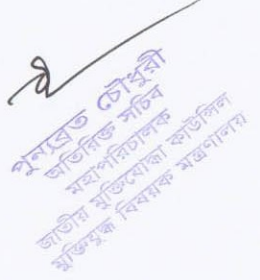 পুনর্ব্রত চৌধুরী
অতিরিক্ত সচিব
মহাপরিচালক
জাতীয় মুক্তিযোদ্ধা কাউন্সিল
মুক্তিযুদ্ধ বিষয়ক মন্ত্রণালয়